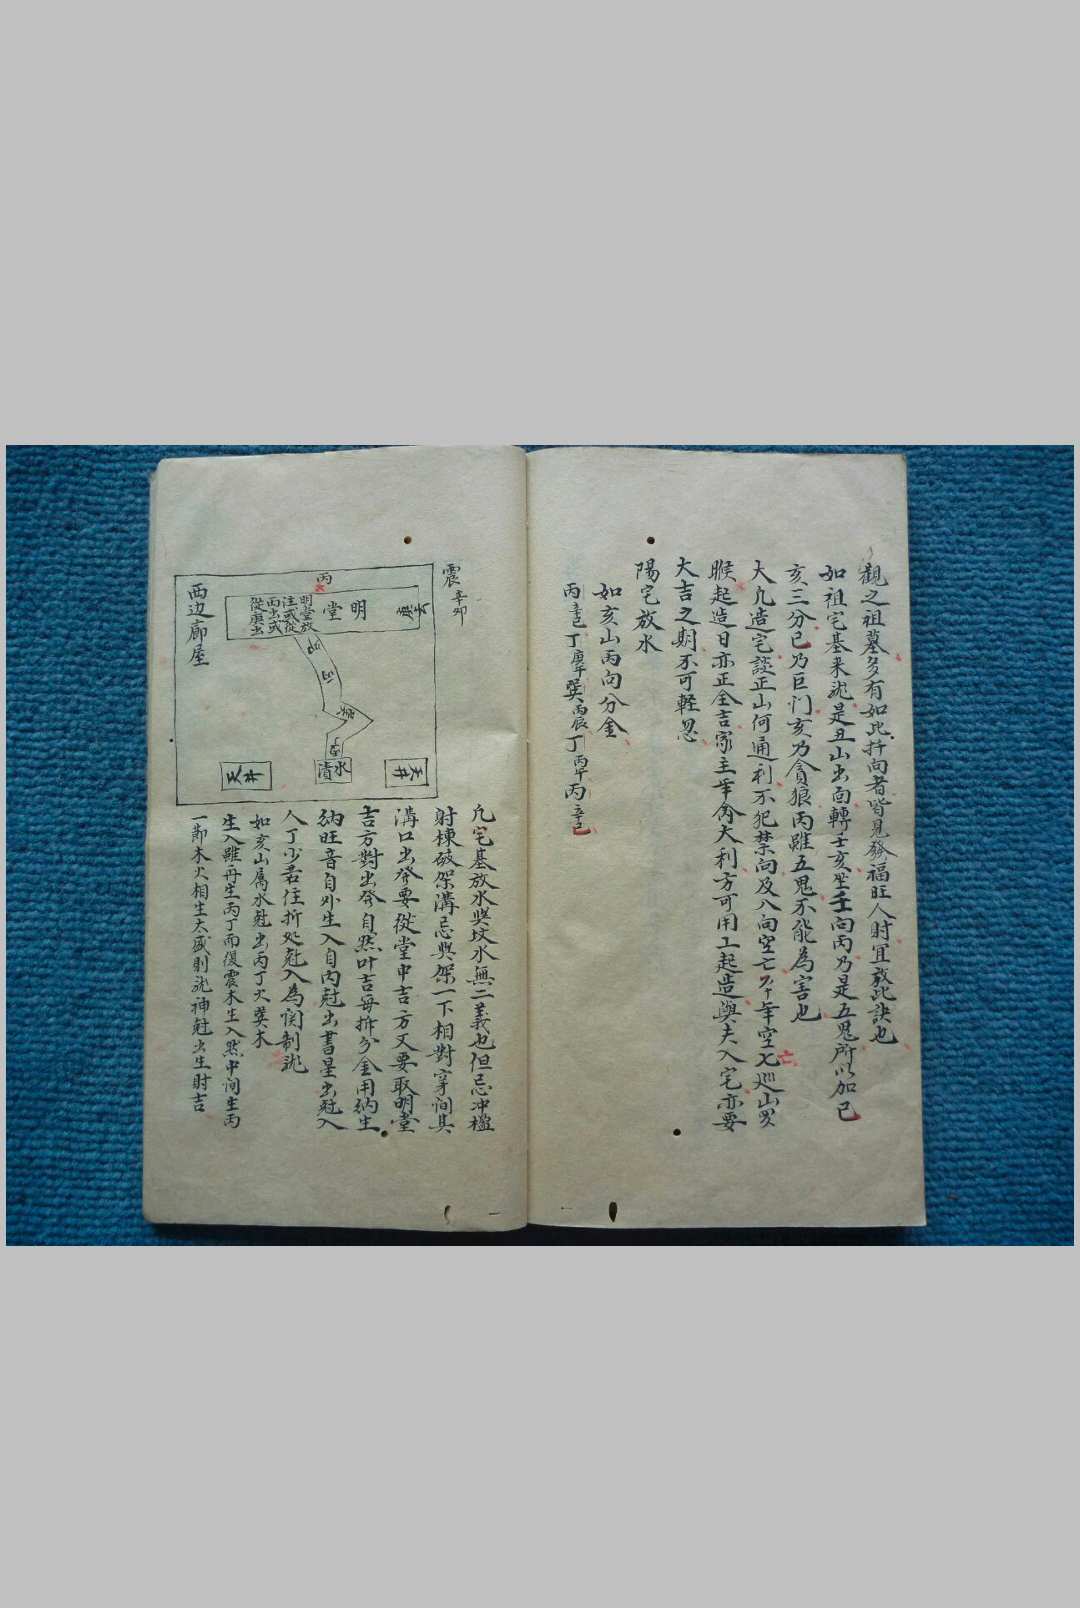 觀之祖墓多有如此扦向者皆見發福旺人財宜哉此訣也
如祖宅基来龍是丑山出面轉壬亥坐壬向丙乃是五鬼所以加己
亥三分已乃巨门亥乃貪狼丙雖五鬼不能為害也
大凢造宅談正山何通利不犯禁向及八向空亡年空亡巡山
䐅起造日亦正全吉家主年禽大利方可用工起造與夫入宅亦要
大吉之期不可輕忽
陽宅放水
如亥山丙向分金
丙辛巳丁庚午巽丙辰丁丙午丙辛巳
震辛卯
丙
明堂
明堂放
注或從
丙出或
從庚出
西边廊屋
天井
天井
凢宅基放水與坟水無二義也但忌冲楹
射棟破架溝忌與架一下相對穿间其
溝口出發要從堂中吉方又要取明堂
吉方對出發自然叶吉每拆分金用纳生
纳旺音自外生入自内尅出書星出尅入
人丁少若住折处尅入為闵制龍
如亥山属水尅出丙丁火巽木
生入雖再生丙丁而復震木生入然中间生丙
一節木火相生太盛則龍神尅出生財吉